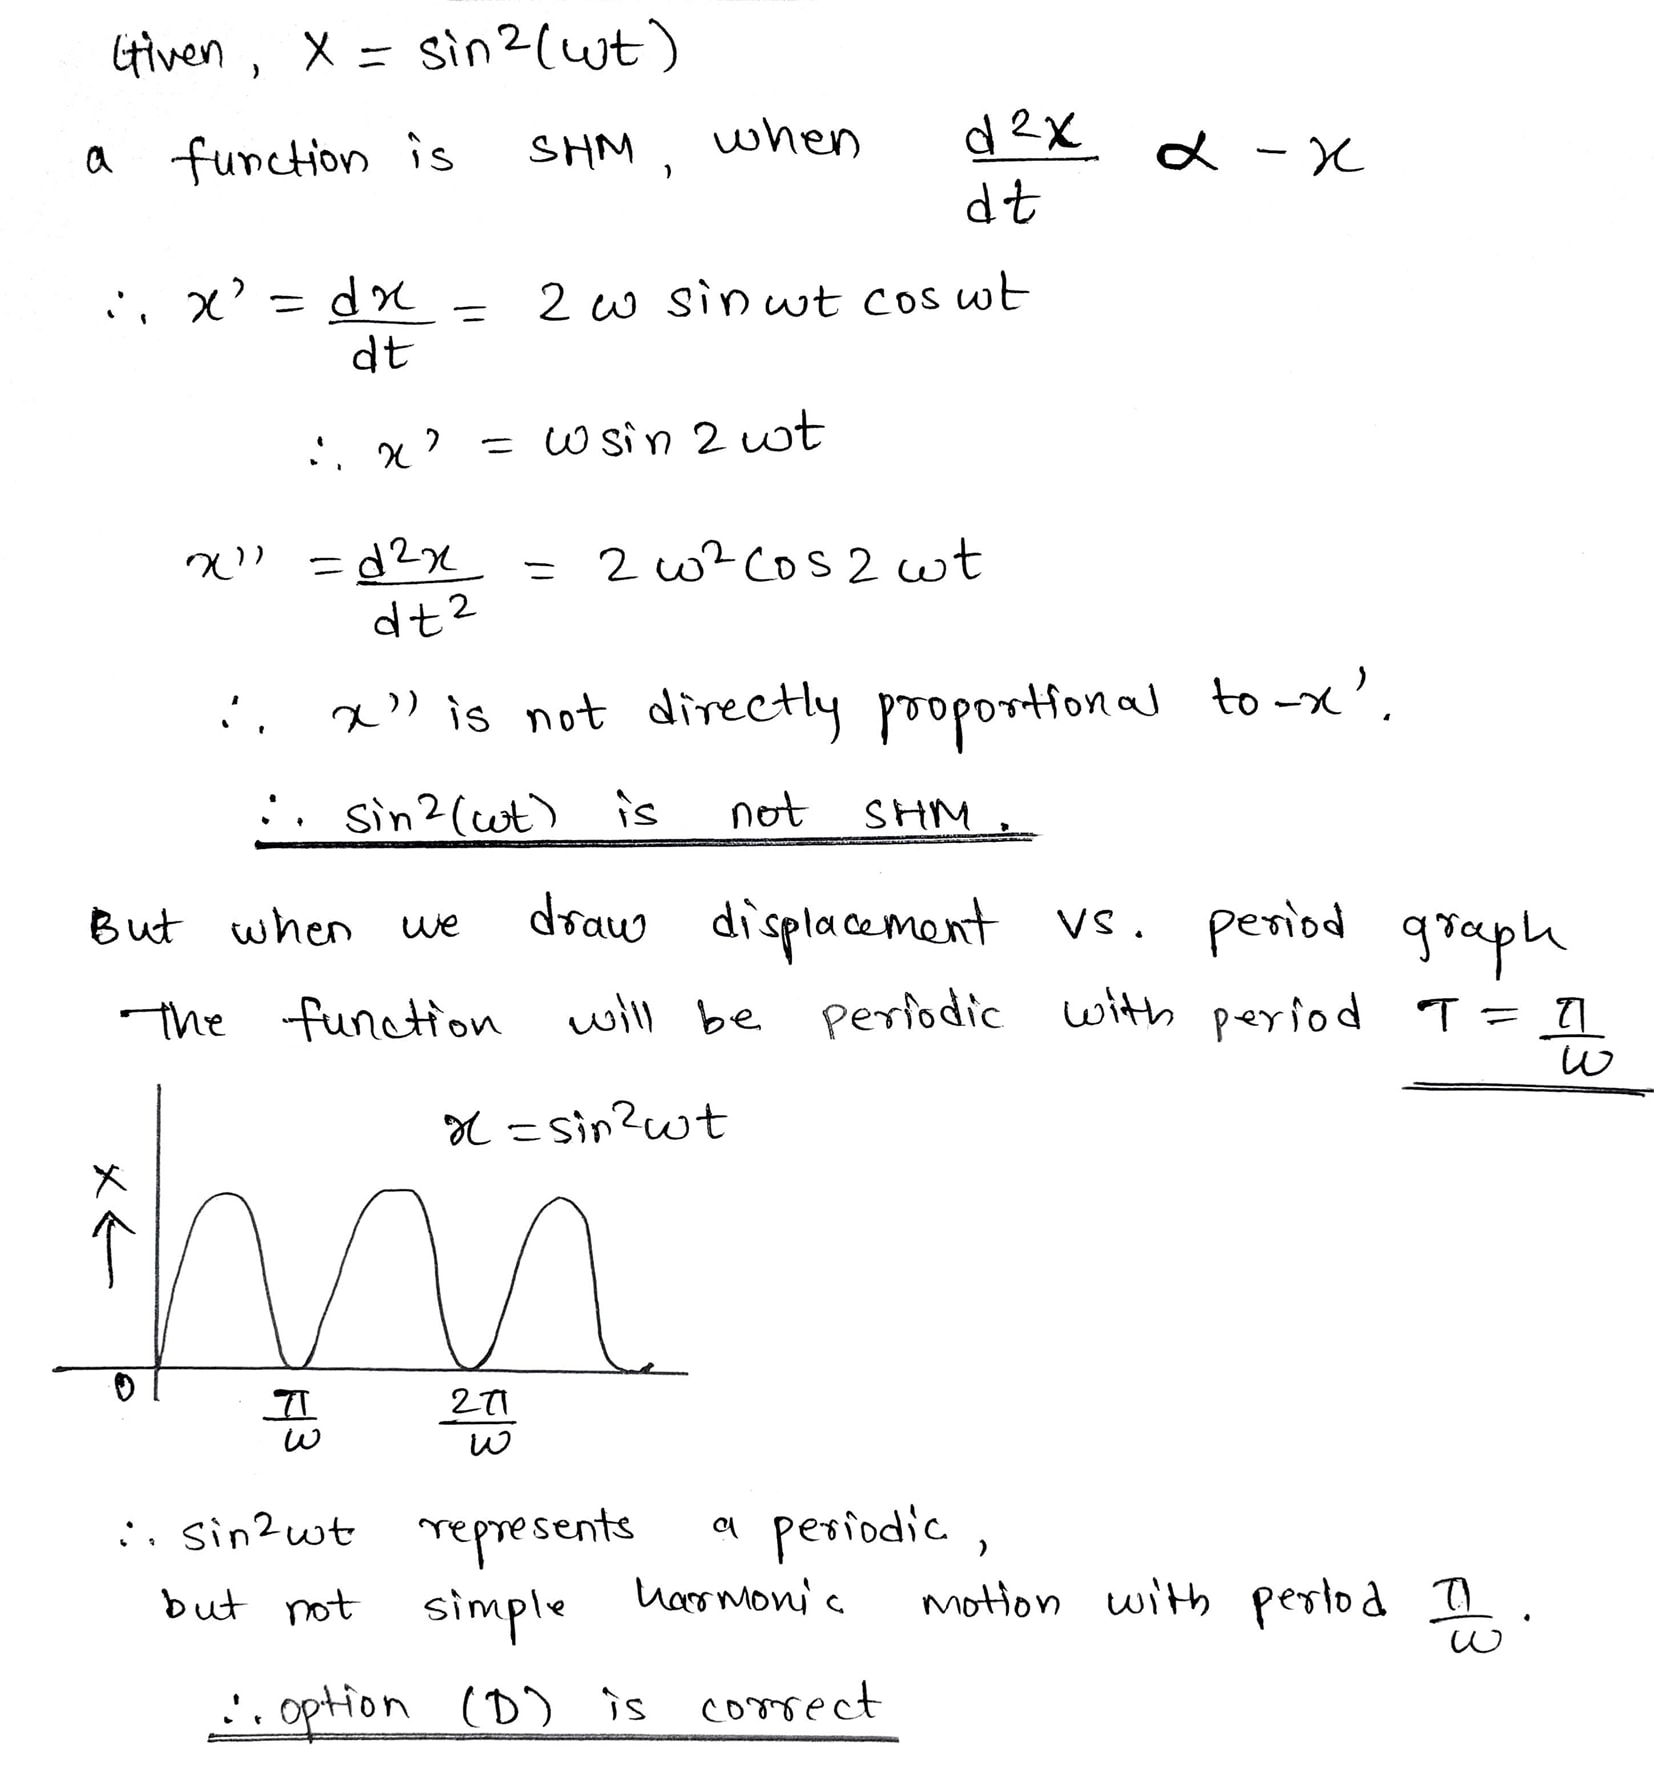 Given, X = sin2(ωt)
a function is SHM, when d2x/dt α -x
∴ x' = dx/dt = 2ω sinωt cosωt
∴ x' = ωsin2ωt
x'' = d2x/dt2 = 2ω2cos2ωt
∴ x'' is not directly proportional to -x'.
∴ sin2(ωt) is not SHM.
But when we draw displacement vs. period graph
The function will be periodic with period T = π/ω
x = sin2ωt
X
↑
0
π/ω 2π/ω
∴ sin2ωt represents a periodic,
but not simple harmonic motion with period π/ω.
∴ option (D) is correct